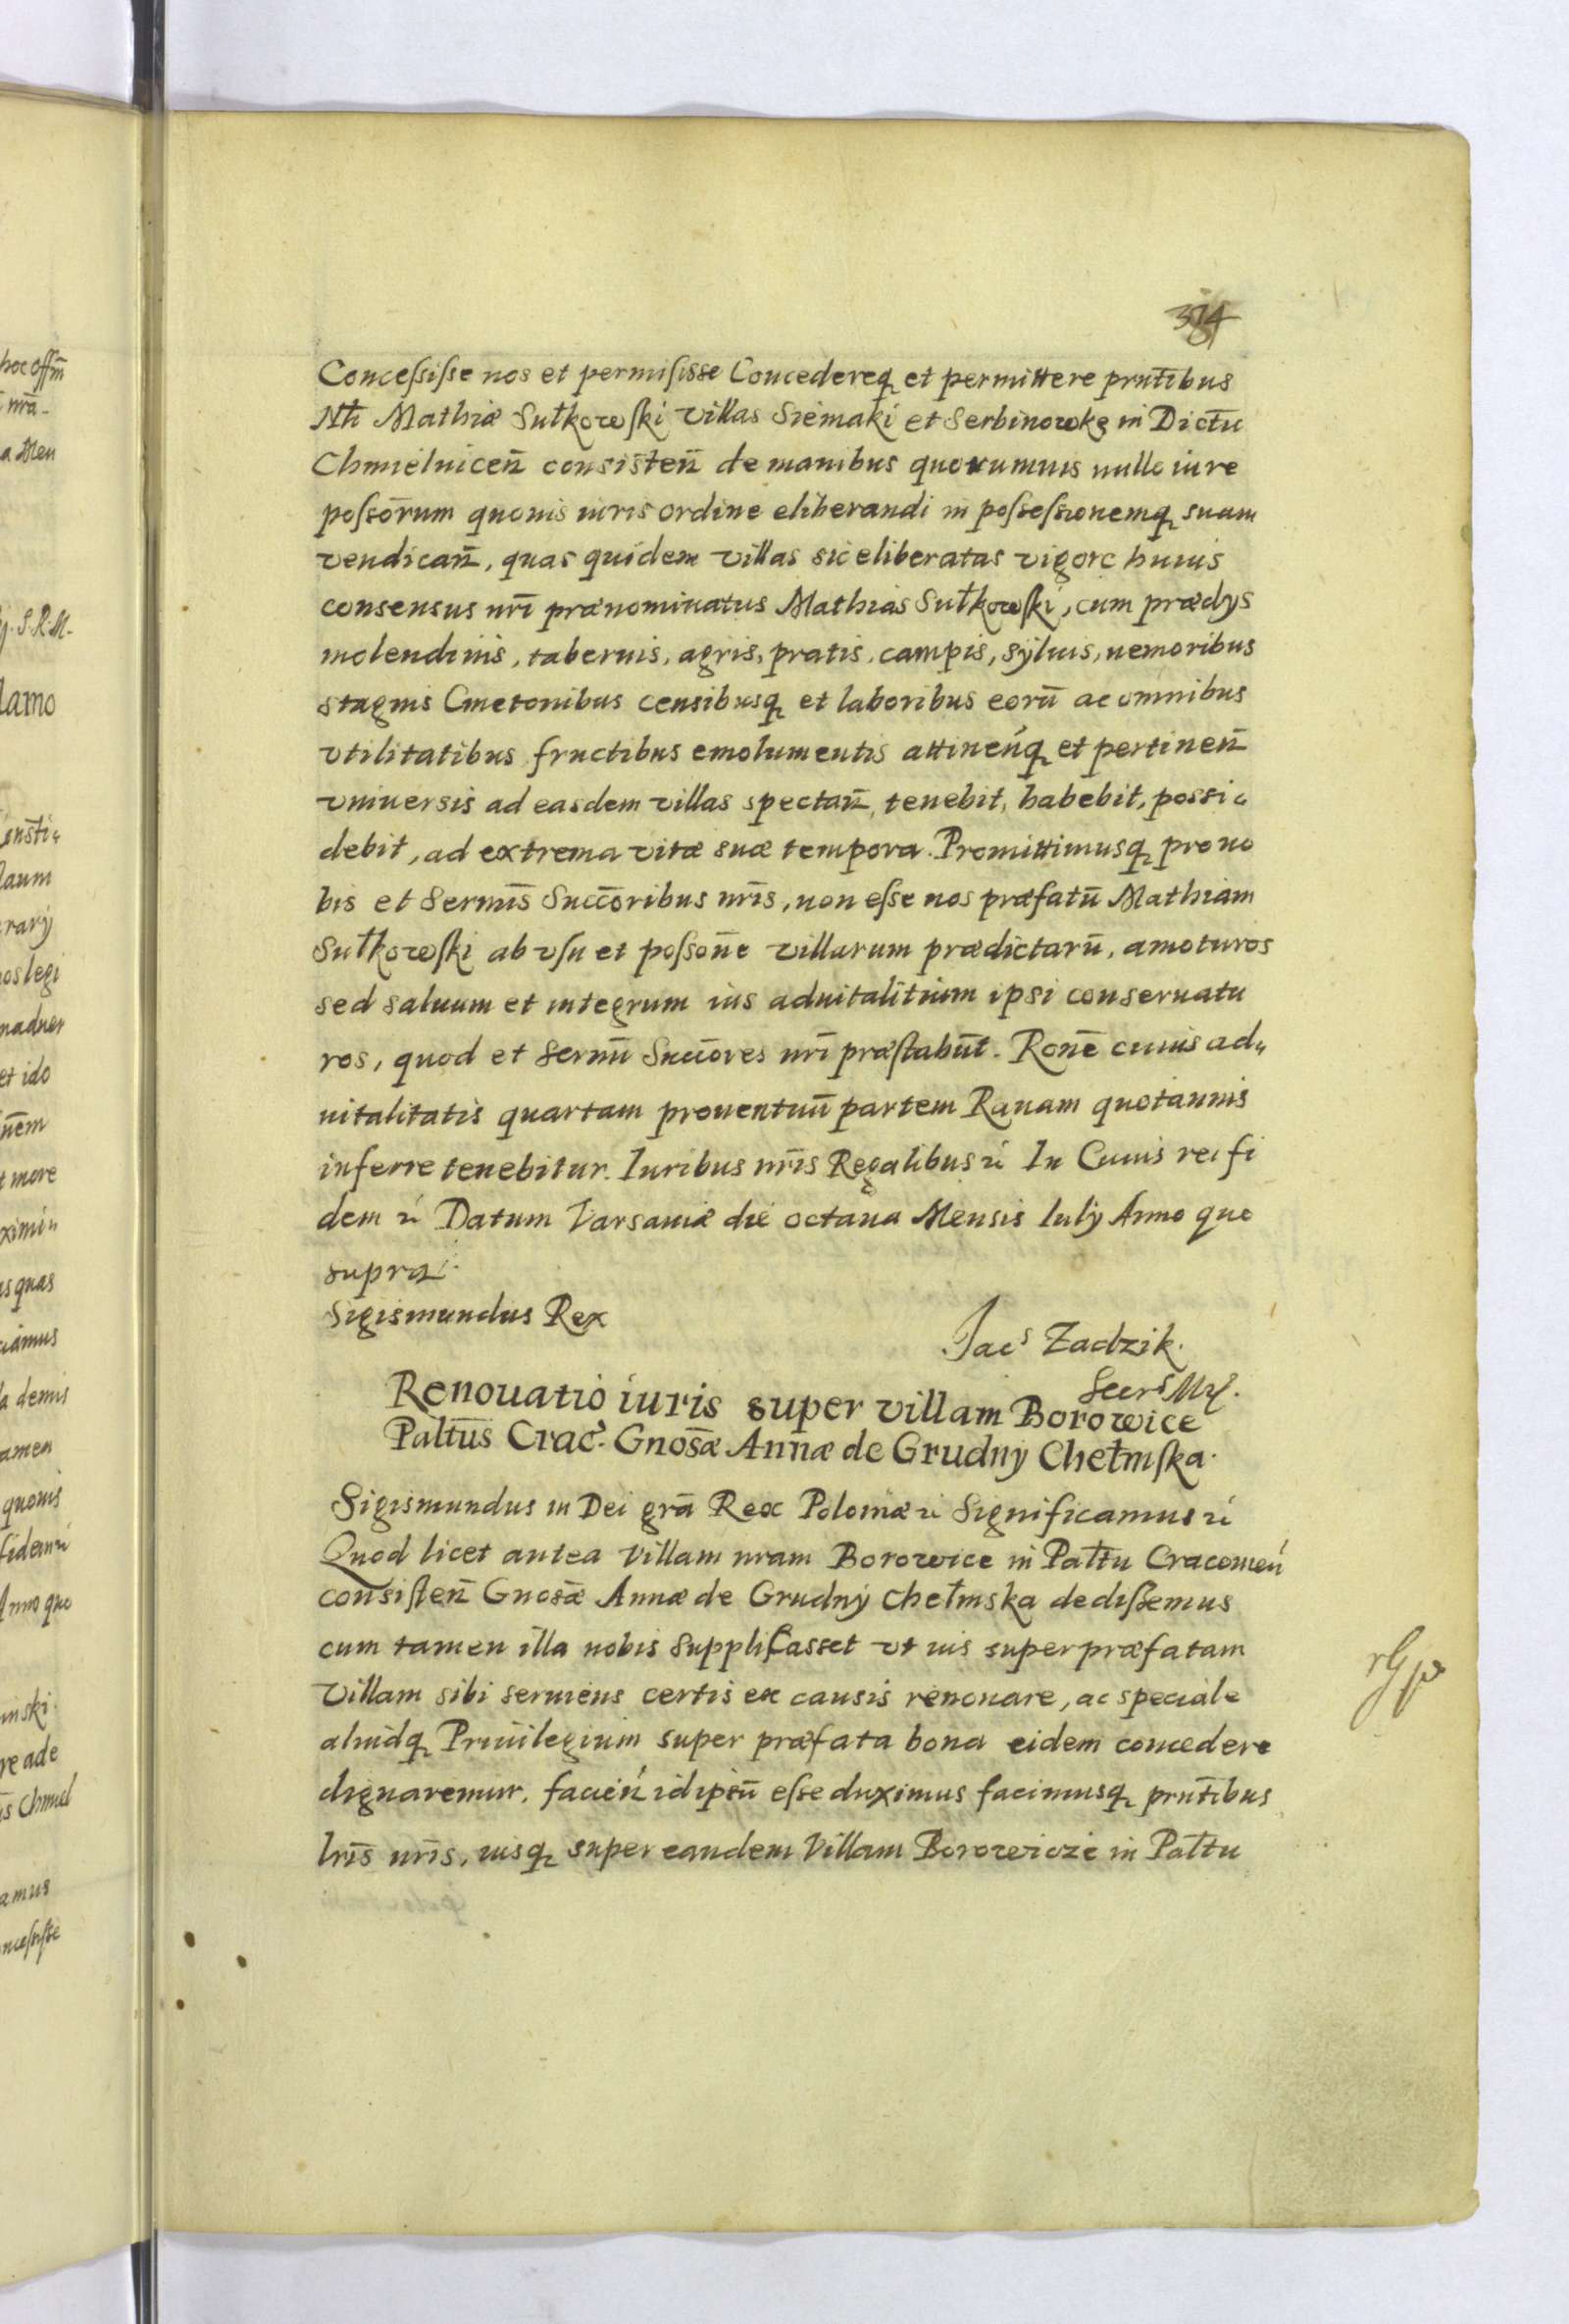 Concessisse nos et permisisse Concedereq et permittere prntibus
Nli Mathiæ Sułkowski villas Siemaki et Serbinowkę in Dictu
Chmielnicen consisten de manibus quorumuis nullo iure
possorum quouis iuris ordine eliberandi in possessionemq suam
vendican, quas quidem villas sic eliberatas vigore huius
consensus nri prænominatus Mathias Sułkowski, cum prædys
molendinis, tabernis, agris, pratis, campis, syluis, nemoribus
stagnis Cmetonibus censibusq et laboribus eoru ac omnibus
vtilitatibus fructibus emolumentis attinenq et pertinen
vniuersis ad easdem villas spectan, tenebit, habebit, possi
debit, ad extrema vitæ suæ tempora. Promittimusq pro no
bis et Sermis Succoribus nris, non esse nos præfatu Mathiam
Sułkowski ab vsu et possone villarum prædictaru, amoturos
sed saluum et integrum ius aduitalitium ipsi conseruatu
ros, quod et sermi Succores nri præstabut. Rone cuius ad
uitalitatis quartam prouentuu partem Rauam quotannis
inferre tenebitur. Iuribus nris Regalibus ꝛc In Cuius rei fi
dem ꝛc Datum Varsauiæ die octaua Mensis Iuly Anno quo
supra.
Sigismundus Rex
Jacs Zadzik.
Secrs
Renouatio iuris super villam Borowice
Paltus Crac. Gnosæ Annæ de Grudny Chełmska.
Sigismundus III Dei gra Rex Poloniæ ꝛc Significamus ꝛc
Quod licet antea Villam nram Borowice in Pałtu Cracouien
consisten Gnosæ Annæ de Grudny Chełmska dedissemus
cum tamen illa nobis Supplicasset vt ius super præfatam
Villam sibi seruiens certis ex causis renouare, ac speciale
aliudq Priuilegium super præfata bona eidem concedere
dignaremur. facien id ipsu esse duximus facimusq prntibus
lris nris, iusq super eandem Villam Borowicze in Pałtu